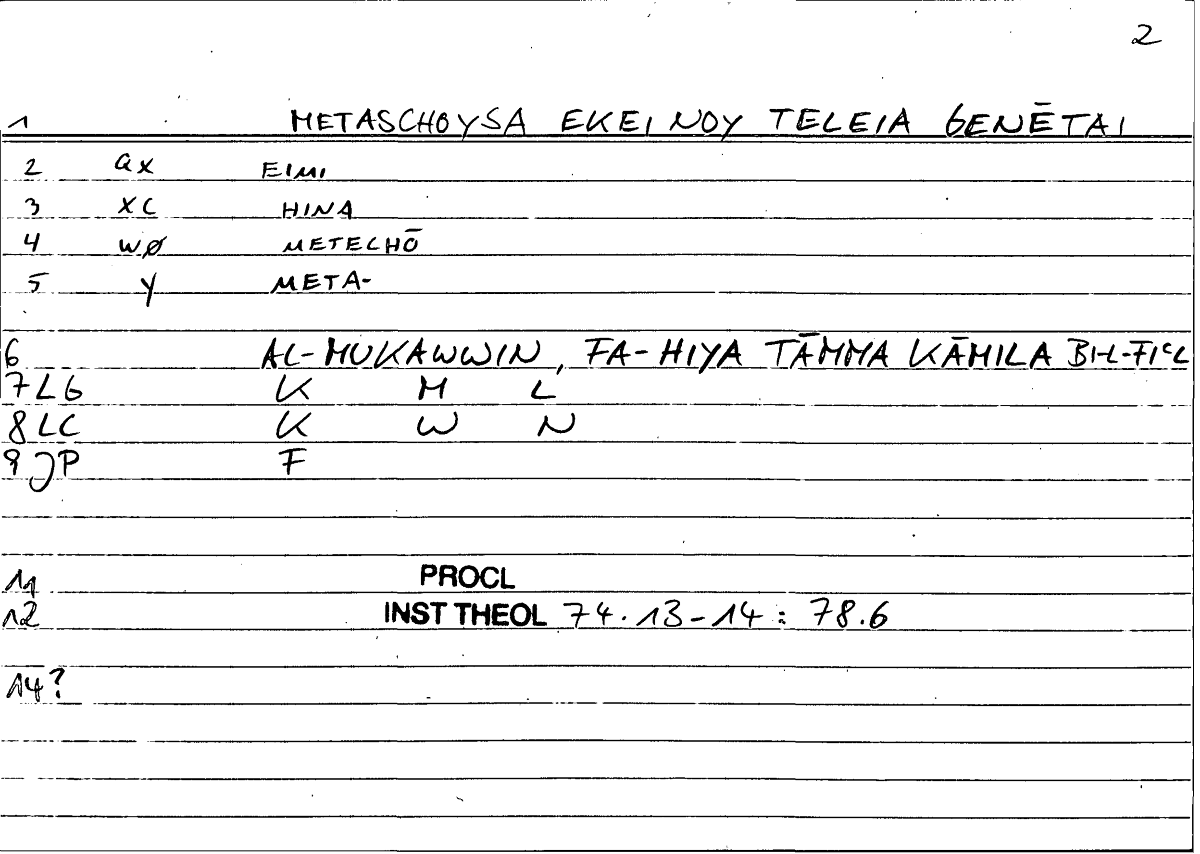 2
1 METASCHOYSA EKEINOY TELEIA GENĒTAI
2 ax EIMI
3 XC HINA
4 wø METECHŌ
5 y META-
6 AL-MUKAWWIN, FA-HIYA TĀMMA KĀMILA BI-L-FIʿL
7 LG K M L
8 LC K W N
9 JP F
11 PROCL
12 INST THEOL 74.13-14 : 78.6
14?